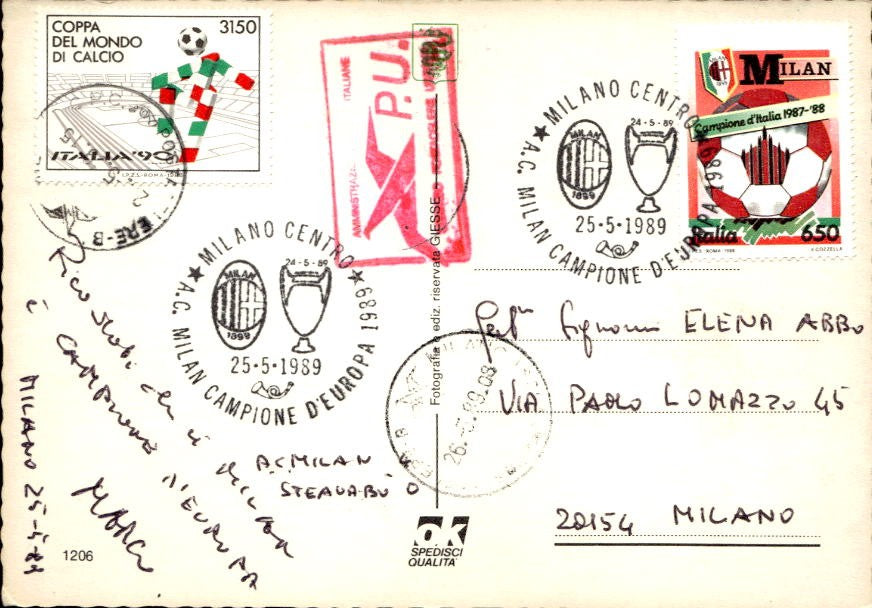 COPPA
DEL MONDO
DI CALCIO
3150
ITALIA '90
I.P.Z.S.-ROMA-
AMMINISTRAZ
ITALIANE
P.U.
MILANO CENTRO
24-5-89
MILAN
1899
25-5-1989
A.C. MILAN CAMPIONE D'EUROPA 1989
MILAN
Campione d'Italia 1987-'88
Italia
650
ROMA
MILANO CENTRO
24-5-89
MILAN
1899
25-5-1989
A.C. MILAN CAMPIONE D'EUROPA 1989
Fotografia e ediz. riservata GIESSE
è CAMPIONE D'EUROPA
MILANO 25-5-89
A.C. MILAN
STEAUA BU 0
ELENA ABBO
VIA PAOLO LOMAZZO 45
20154 MILANO
ok
SPEDISCI
QUALITA'
1206